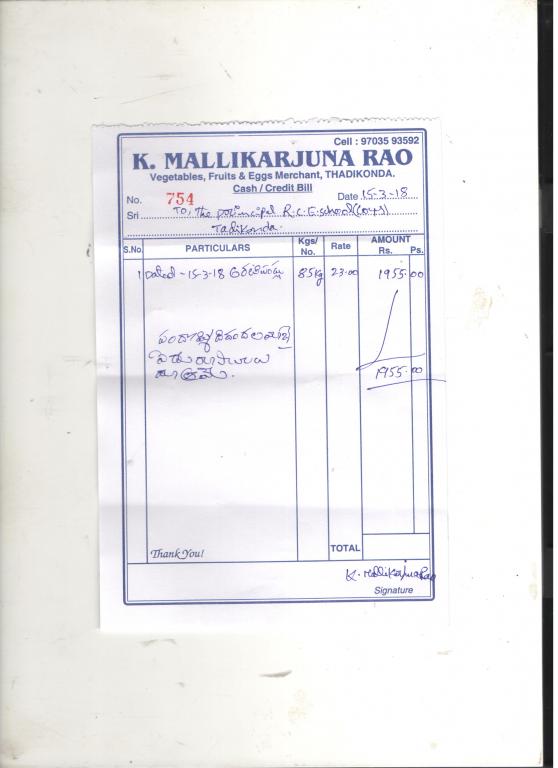 Cell : 97035 93592
K. MALLIKARJUNA RAO
Vegetables, Fruits & Eggs Merchant, THADIKONDA.
Cash / Credit Bill
No. 754 Date 15-3-18
Sri To, The principal R.C.E. school (Boys)
Tadikonda.
S.No. PARTICULARS Kgs/ No. Rate AMOUNT Rs. Ps.
1 Dated - 15-3-18 అరటిపండ్లు 85kg 23.00 1955.00
రూపాయలు
మాత్రమే. 1955.00
Thank You! TOTAL
K. Mallikarjuna Rao
Signature